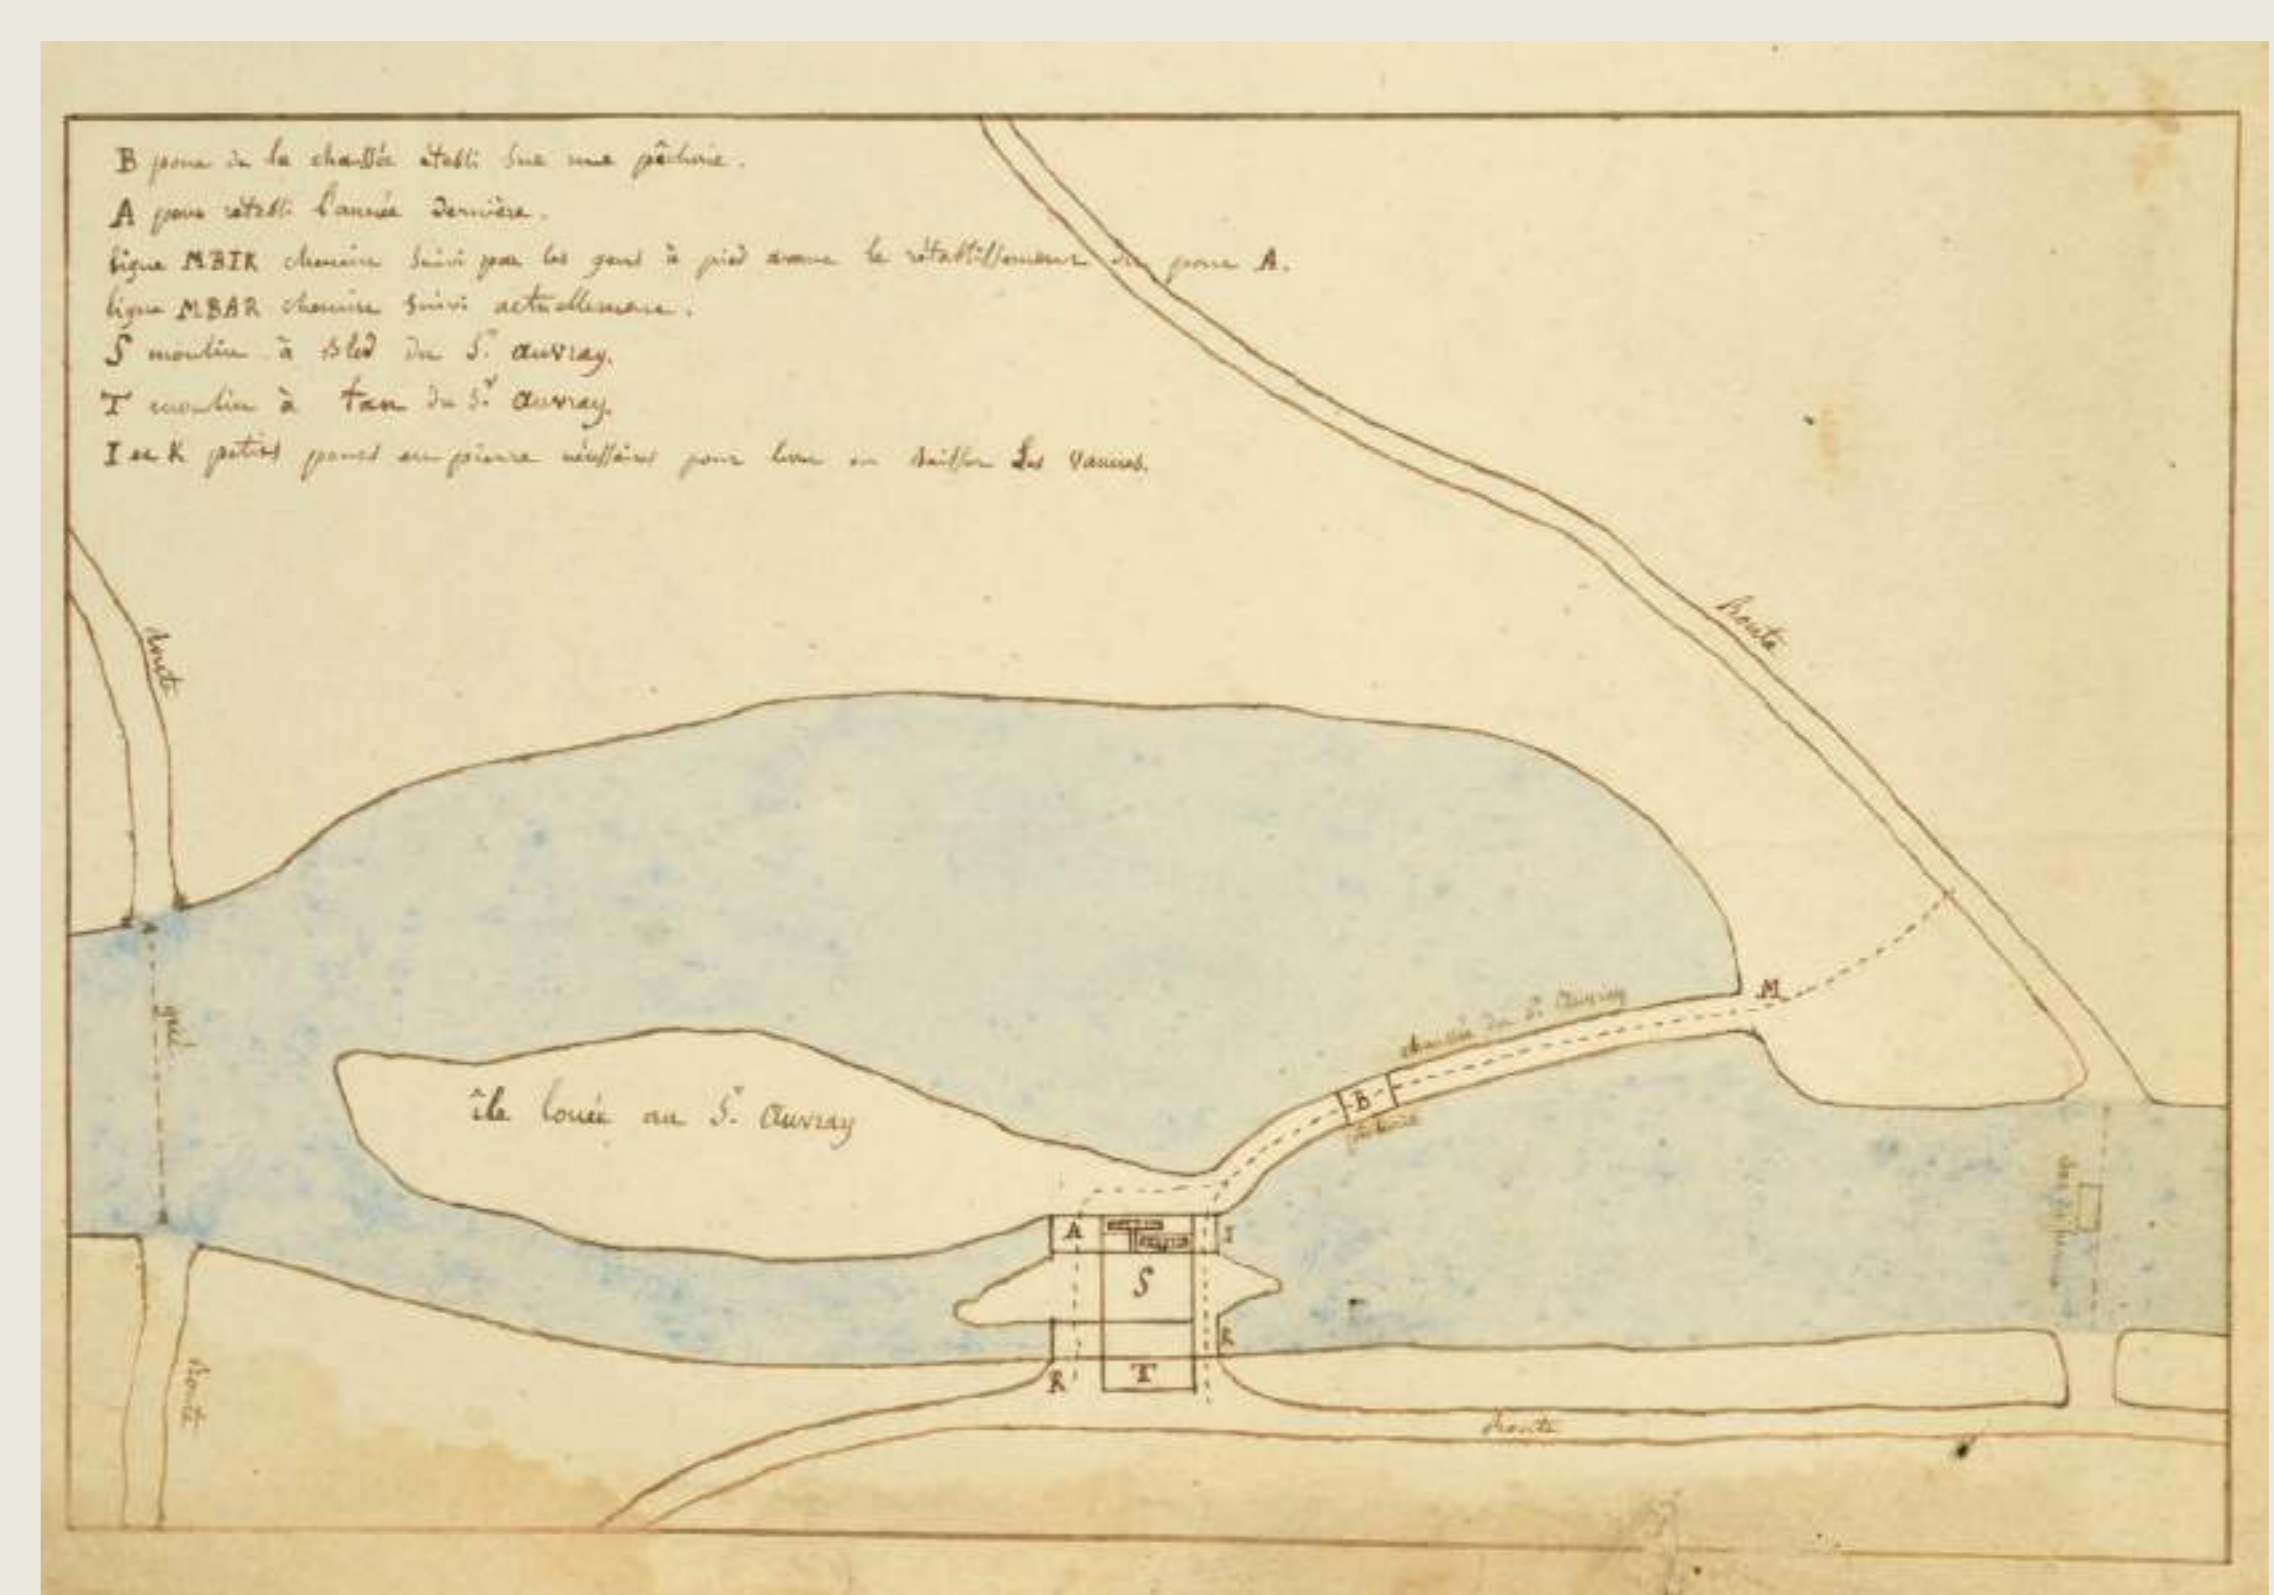 B pont de la chaussée établi sur une pêcherie.
A pont rétabli l'année dernière.
ligne MBIK chemin suivi par les gens à pied avant le rétablissement du pont A.
ligne MBAR chemin suivi actuellement.
S moulin à Bled du Sr. auvray.
T moulin à tan du Sr. auvray.
I et K petits ponts en pierre nécessaires pour lever ou baisser les vannes.
Route
Route
M
chaussée du Sr. Auvray
gué
B
pêcherie
île louée au Sr. Auvray
A
I
S
K
R
T
Route
Route